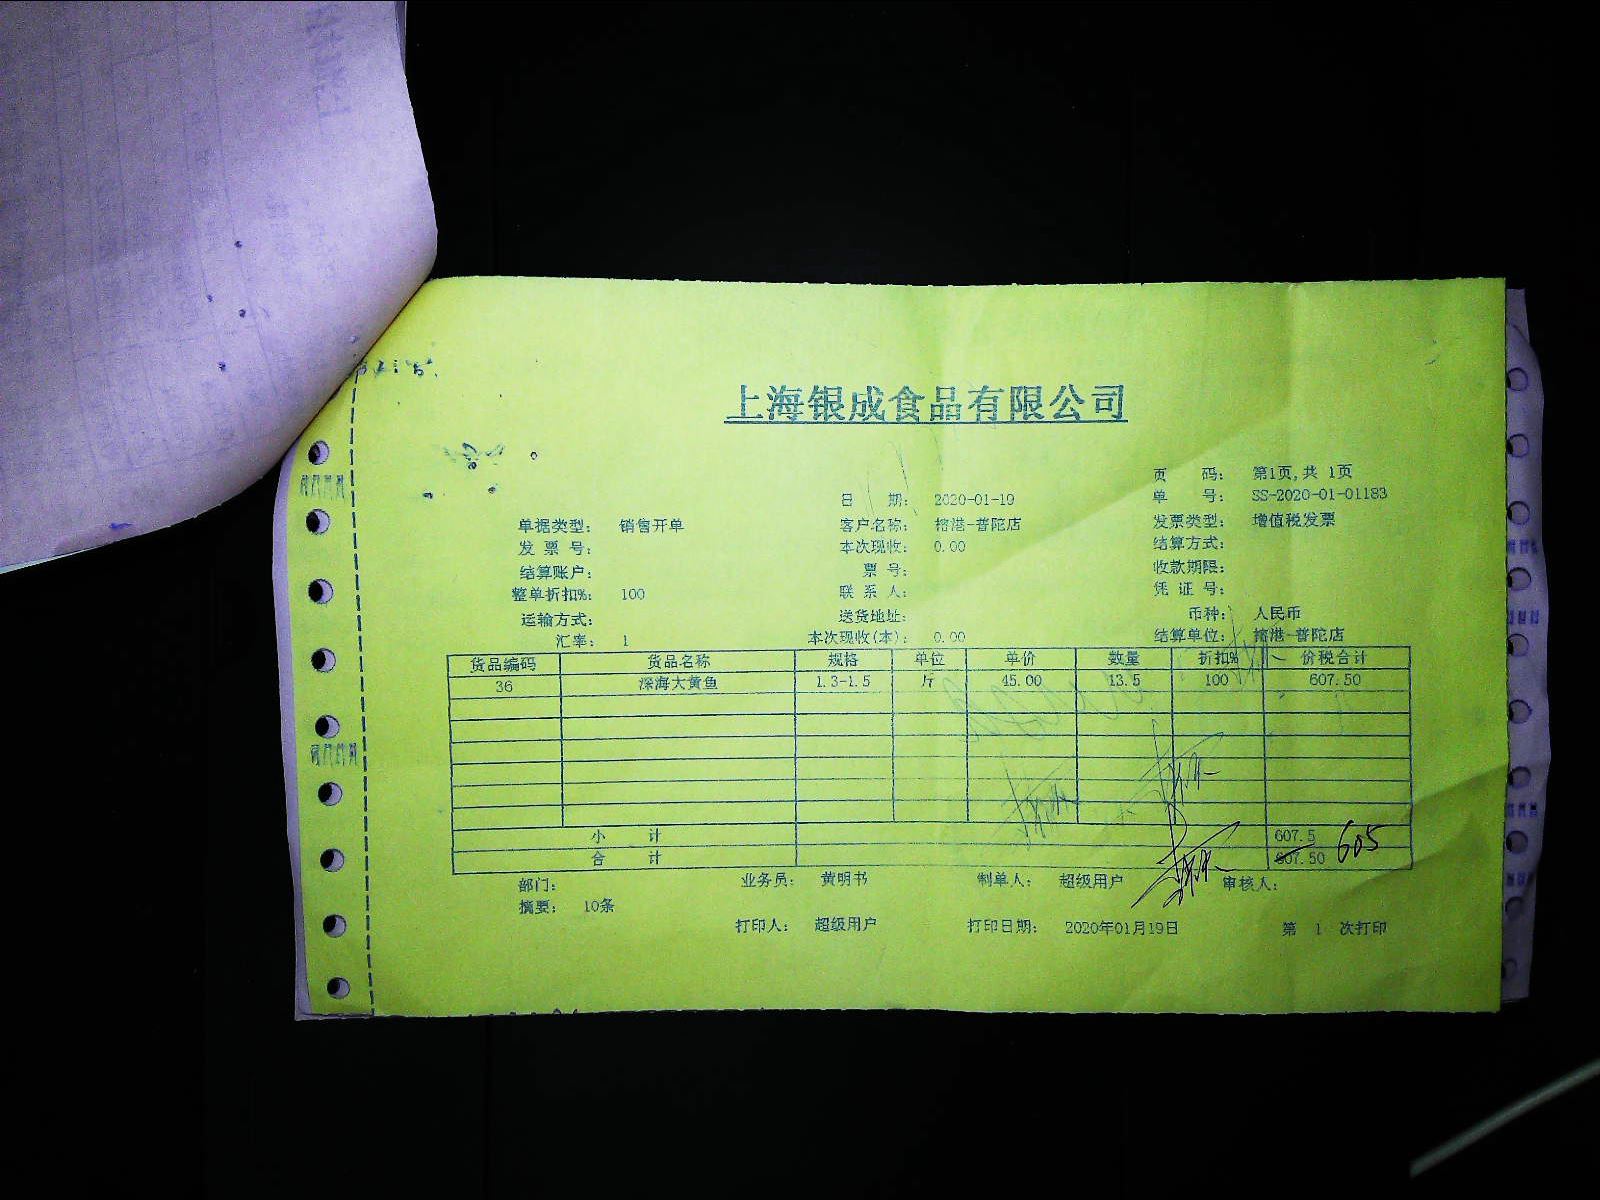 上海银成食品有限公司
页 码： 第1页,共 1页
日 期： 2020-01-19 单 号： SS-2020-01-01183
单据类型： 销售开单 客户名称： 榕港-普陀店 发票类型： 增值税发票
发 票 号： 本次现收： 0.00 结算方式：
结算账户： 票 号： 收款期限：
整单折扣%： 100 联 系 人： 凭 证 号：
运输方式： 送货地址： 币种： 人民币
汇率： 1 本次现收(本)： 0.00 结算单位： 榕港-普陀店
货品编码 货品名称 规格 单位 单价 数量 折扣% 价税合计
36 深海大黄鱼 1.3-1.5 斤 45.00 13.5 100 607.50
小 计 607.5
合 计 607.50 605
部门： 业务员： 黄明书 制单人： 超级用户 审核人：
摘要： 10条
打印人： 超级用户 打印日期： 2020年01月19日 第 1 次打印